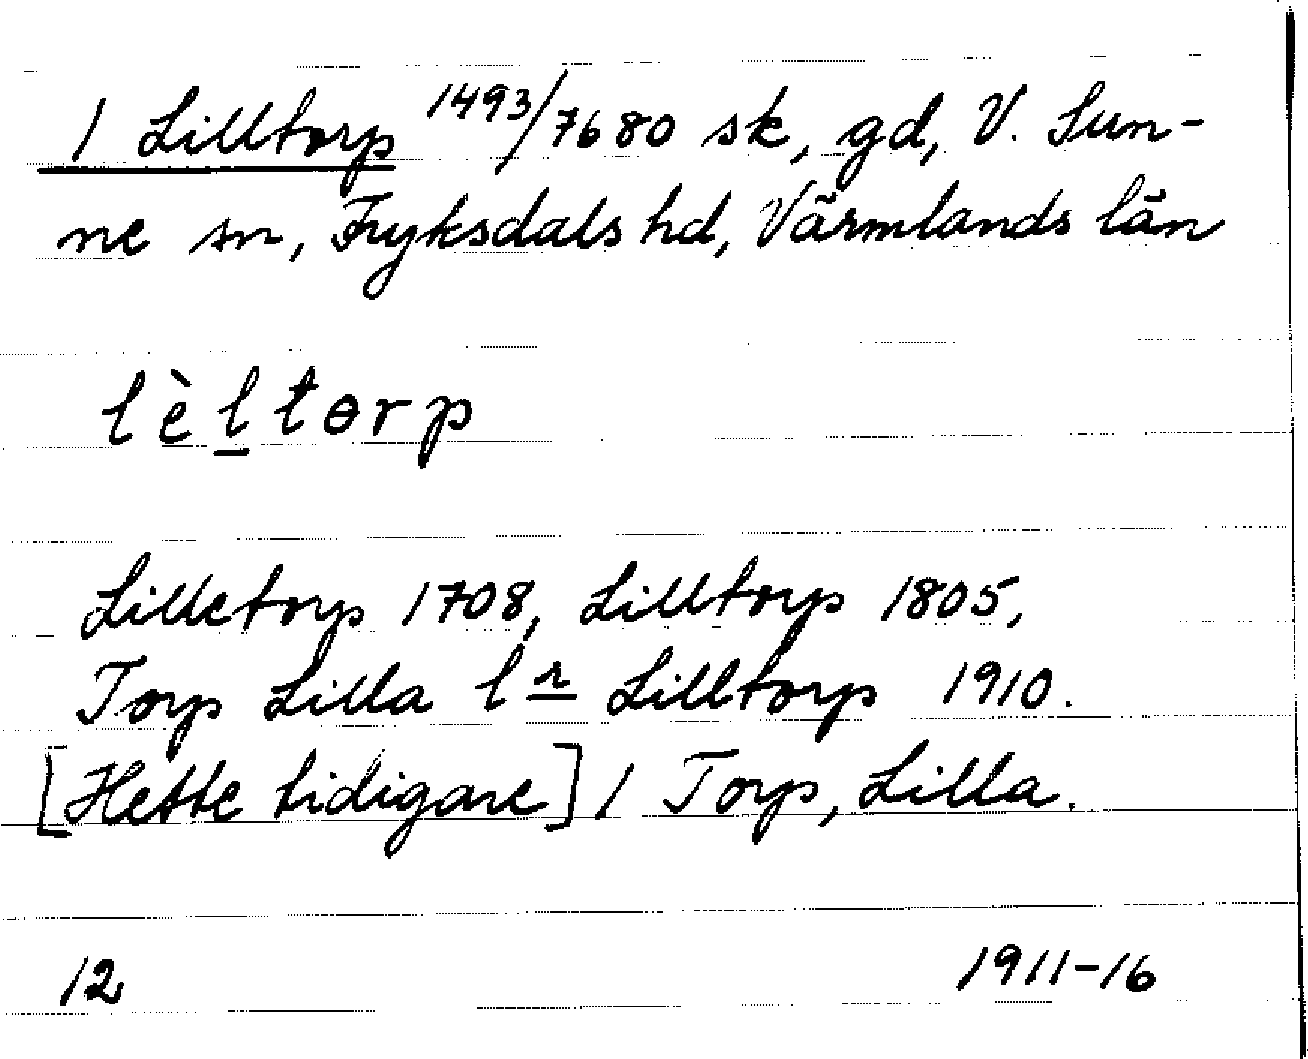 1 Lilltorp 1493/7680 sk, gd, V. Sun-
ne sn, Fryksdals hd, Värmlands län
lèltɵrp
Lilletorp 1708, Lilltorp 1805,
Torp Lilla l r Lilltorp 1910.
[Hette tidigare] 1 Torp, Lilla.
12 1911-16